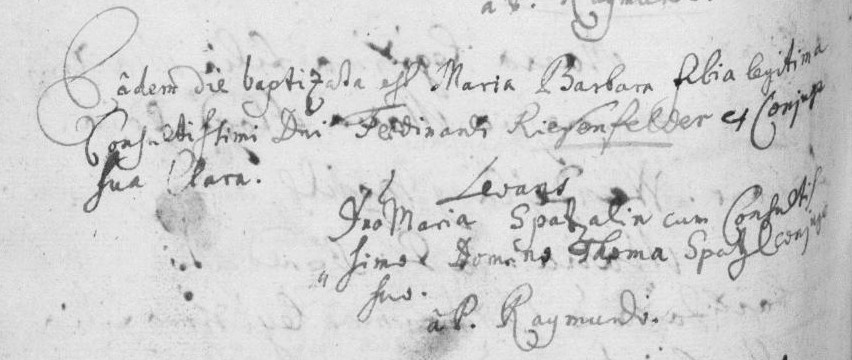 à P. Raymund.
Eâdem die baptizata est Maria Barbara filia legitima
Consultissimi Dni Ferdinandi Riesenfelder et Conjugis
sua Clara.
Levans
Maria Spatzalin cum Consultis
simo Domino Thoma Spatzl conjuge
suo.
â P. Raymundo.